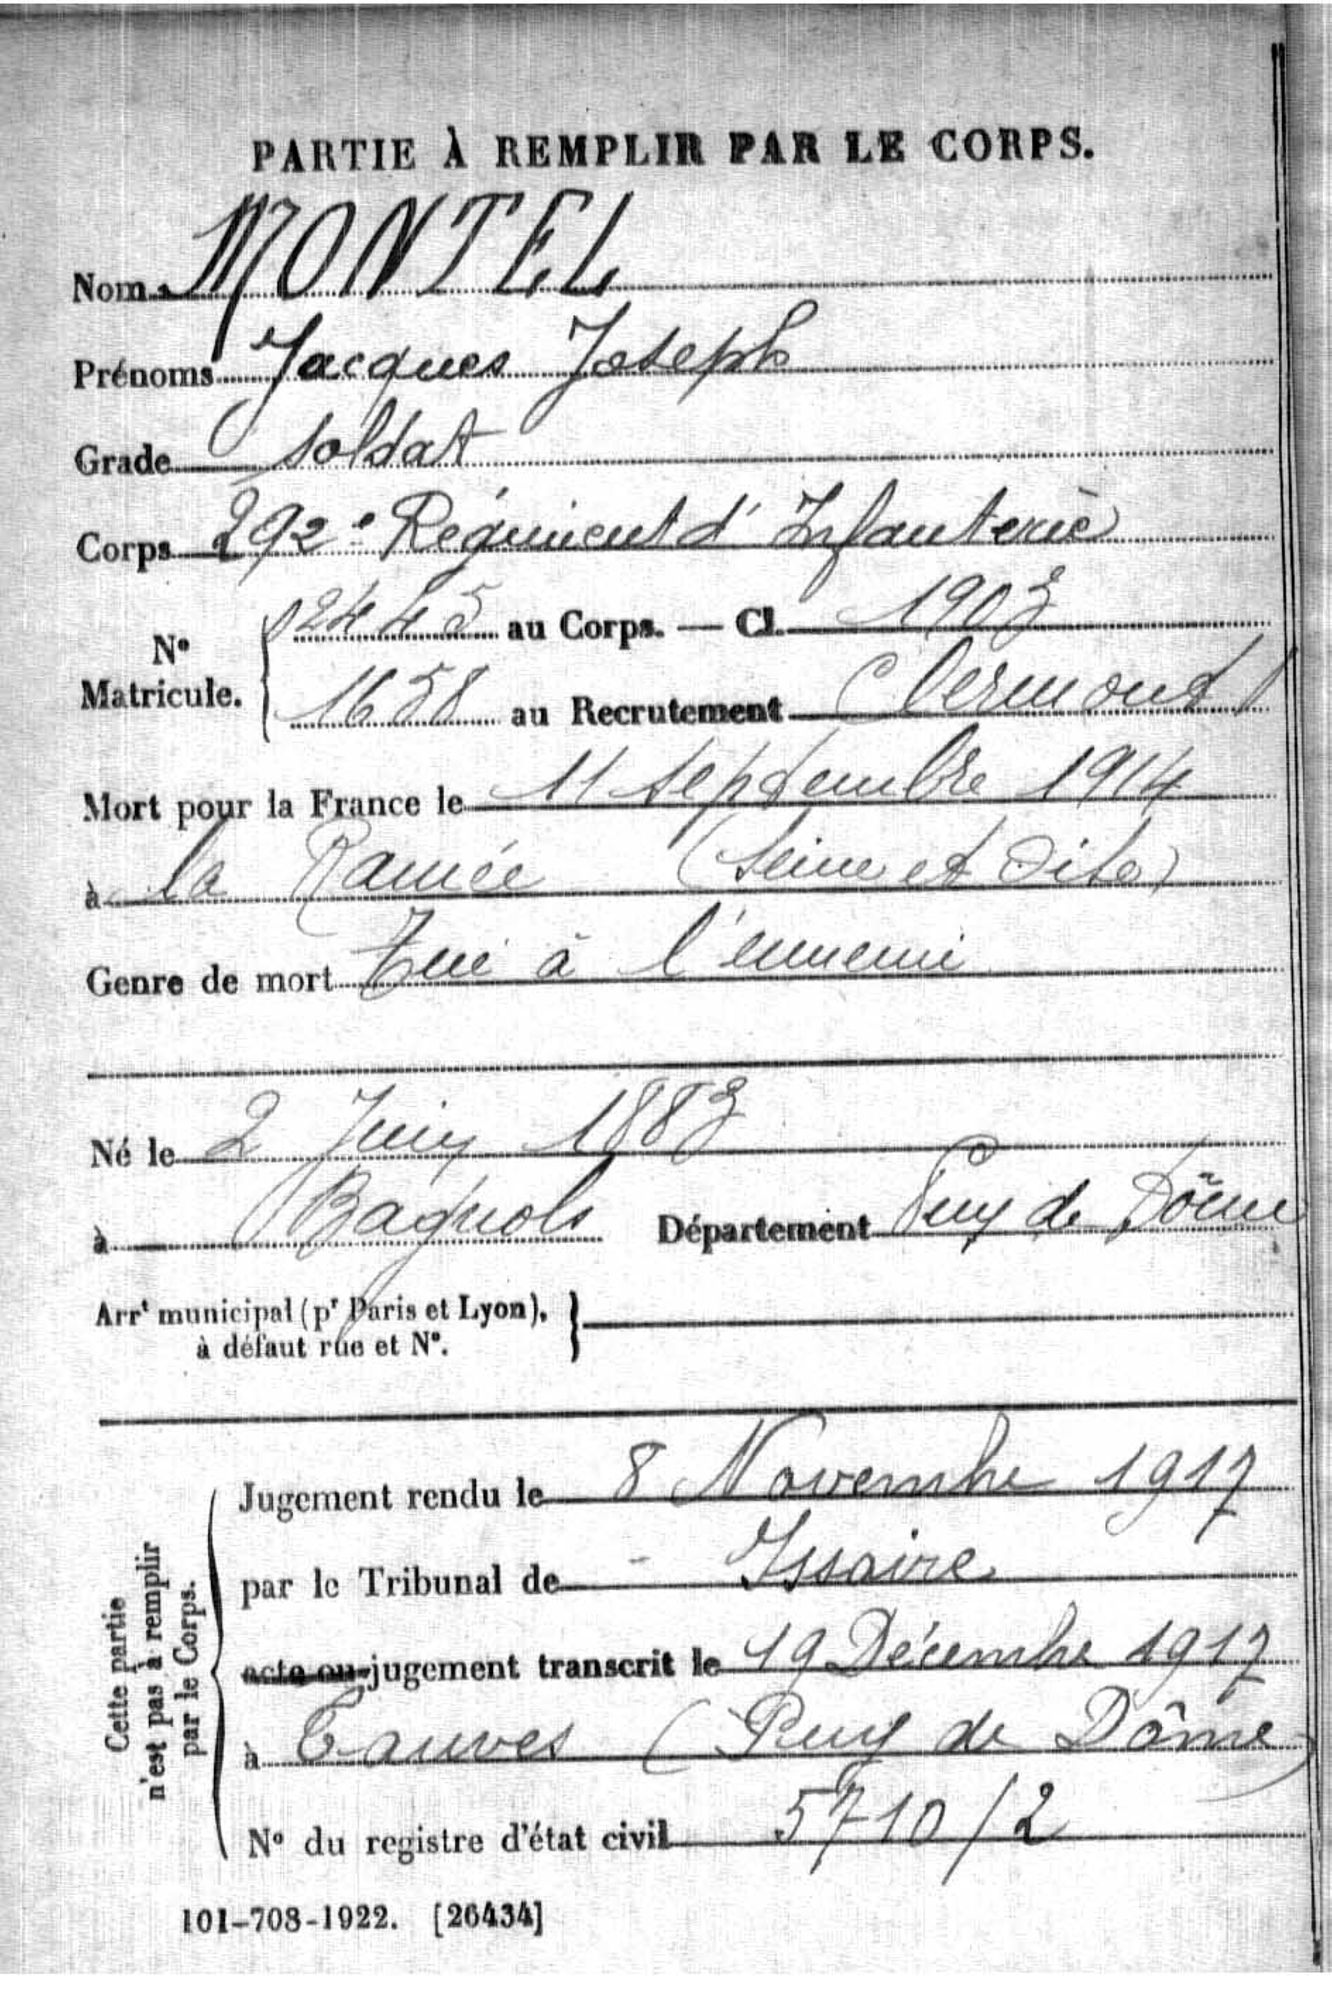 PARTIE À REMPLIR PAR LE CORPS.
Nom MONTEL
Prénoms Jacques Joseph
Grade soldat
Corps 292e Régiment d'Infanterie
No Matricule. { 02445 au Corps. — Cl. 1903
1658 au Recrutement Clermont
Mort pour la France le 11 septembre 1914
à la Ramée (Seine et Oise)
Genre de mort Tué à l'ennemi
Né le 2 Juin 1883
à Bagnols Département Puy de Dôme
Arrt municipal (pr Paris et Lyon), }
à défaut rue et No.
Cette partie n'est pas à remplir par le Corps.
Jugement rendu le 8 Novembre 1917
par le Tribunal de Issoire
acte ou jugement transcrit le 19 Décembre 1917
à Tauves (Puy de Dôme)
No du registre d'état civil 5710/2
101-708-1922. [26434]